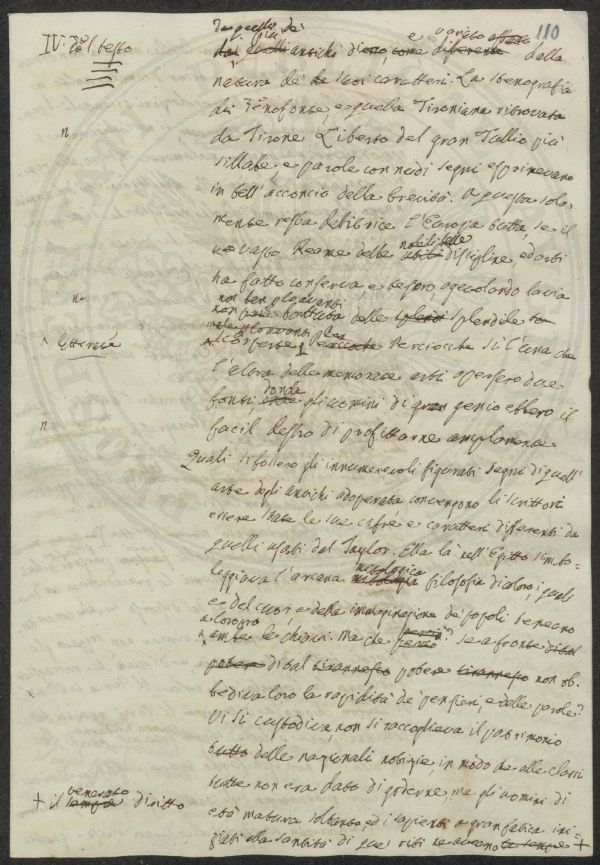 110
IV. del testo
da questo dì
dai quelli antichi e varietà dalla
natura de' suoi caratteri. La stenografia
di Zenofonte, e quella Tironiana ritrovata
da Tirone Liberto del gran Tullio più
sillabe e parole con nudi segni esprimevano
in bell' acconcio della brevità. A questa sola-
mente resta debitrice l'Europa tutta, se il
vasto Reame delle nobili discipline, ed arti
ha fatto conserva, e tesoro, agevolando la via
non ben
delle splendide
letteraria
scoperte perciocchè sì l'una che
l'altra delle memorate arti apersero due
fonti onde gli uomini di gran genio ebbero il
facil destro di profittarne ampiamente
Quali si fossero gli innumerevoli figurati segni di quell'
arte dagli antichi adoperata convengono li scrittori
essere state le sue cifre e caratteri differenti da
quelli usati dal Taylor. Ella là nell'Egitto simbo-
leggiava l'arcana mitologica filosofia di coloro i quali
e del cuore e della immaginazione de' popoli teneano
a loro pro
ambe le chiavi. Ma che perciò? se a fronte
di tal potere non ob-
bediva loro la rapidità de' pensieri, e delle parole?
Vi si custodiva, non si raccoglieva il patrimonio
tutto delle nazionali notizie, in modo che alle classi
tutte non era dato di goderne, ma gli uomini di
età matura soltanto, ed i sapienti a gran fatica ini-
ziati alla santità di quei riti ne aveano +
+ il venerato diritto
n
n
n